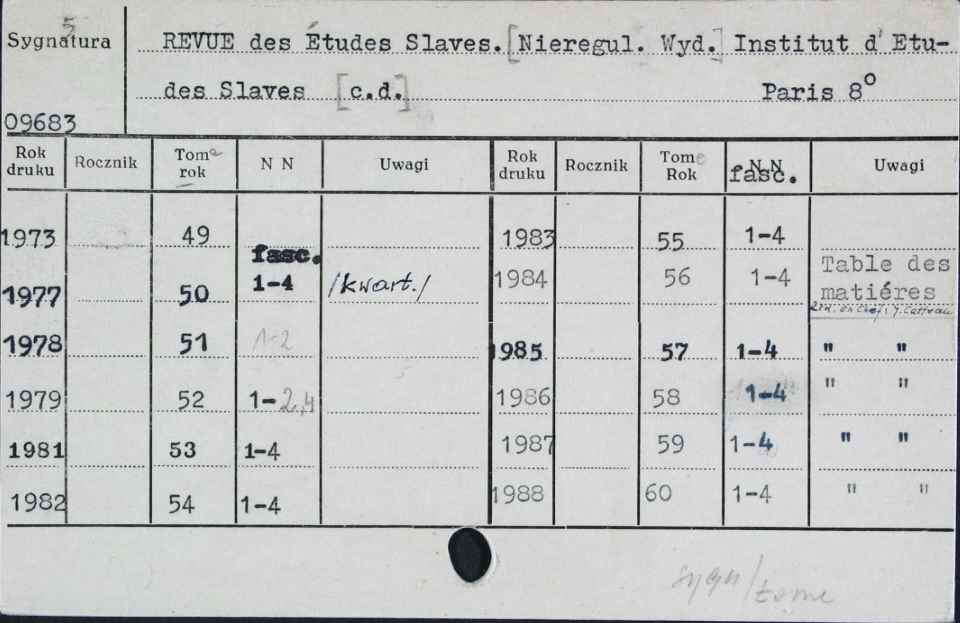 Sygnatura 5 REVUE des Études Slaves. [Nieregul. Wyd.] Institut d'Etu-
des Slaves [c.d.] Paris 8°
09683
Rok druku Rocznik Tome rok N N Uwagi Rok druku Rocznik Tome Rok N N fasc. Uwagi
1973 49 1983 55 1-4
fasc.
1977 50 1-4 /kwart./ 1984 56 1-4 Table des matiéres
1978 51 1-2 1985 57 1-4 " "
1979 52 1-2,4 1986 58 1-4 " "
1981 53 1-4 1987 59 1-4 " "
1982 54 1-4 1988 60 1-4 " "
sygn/tome